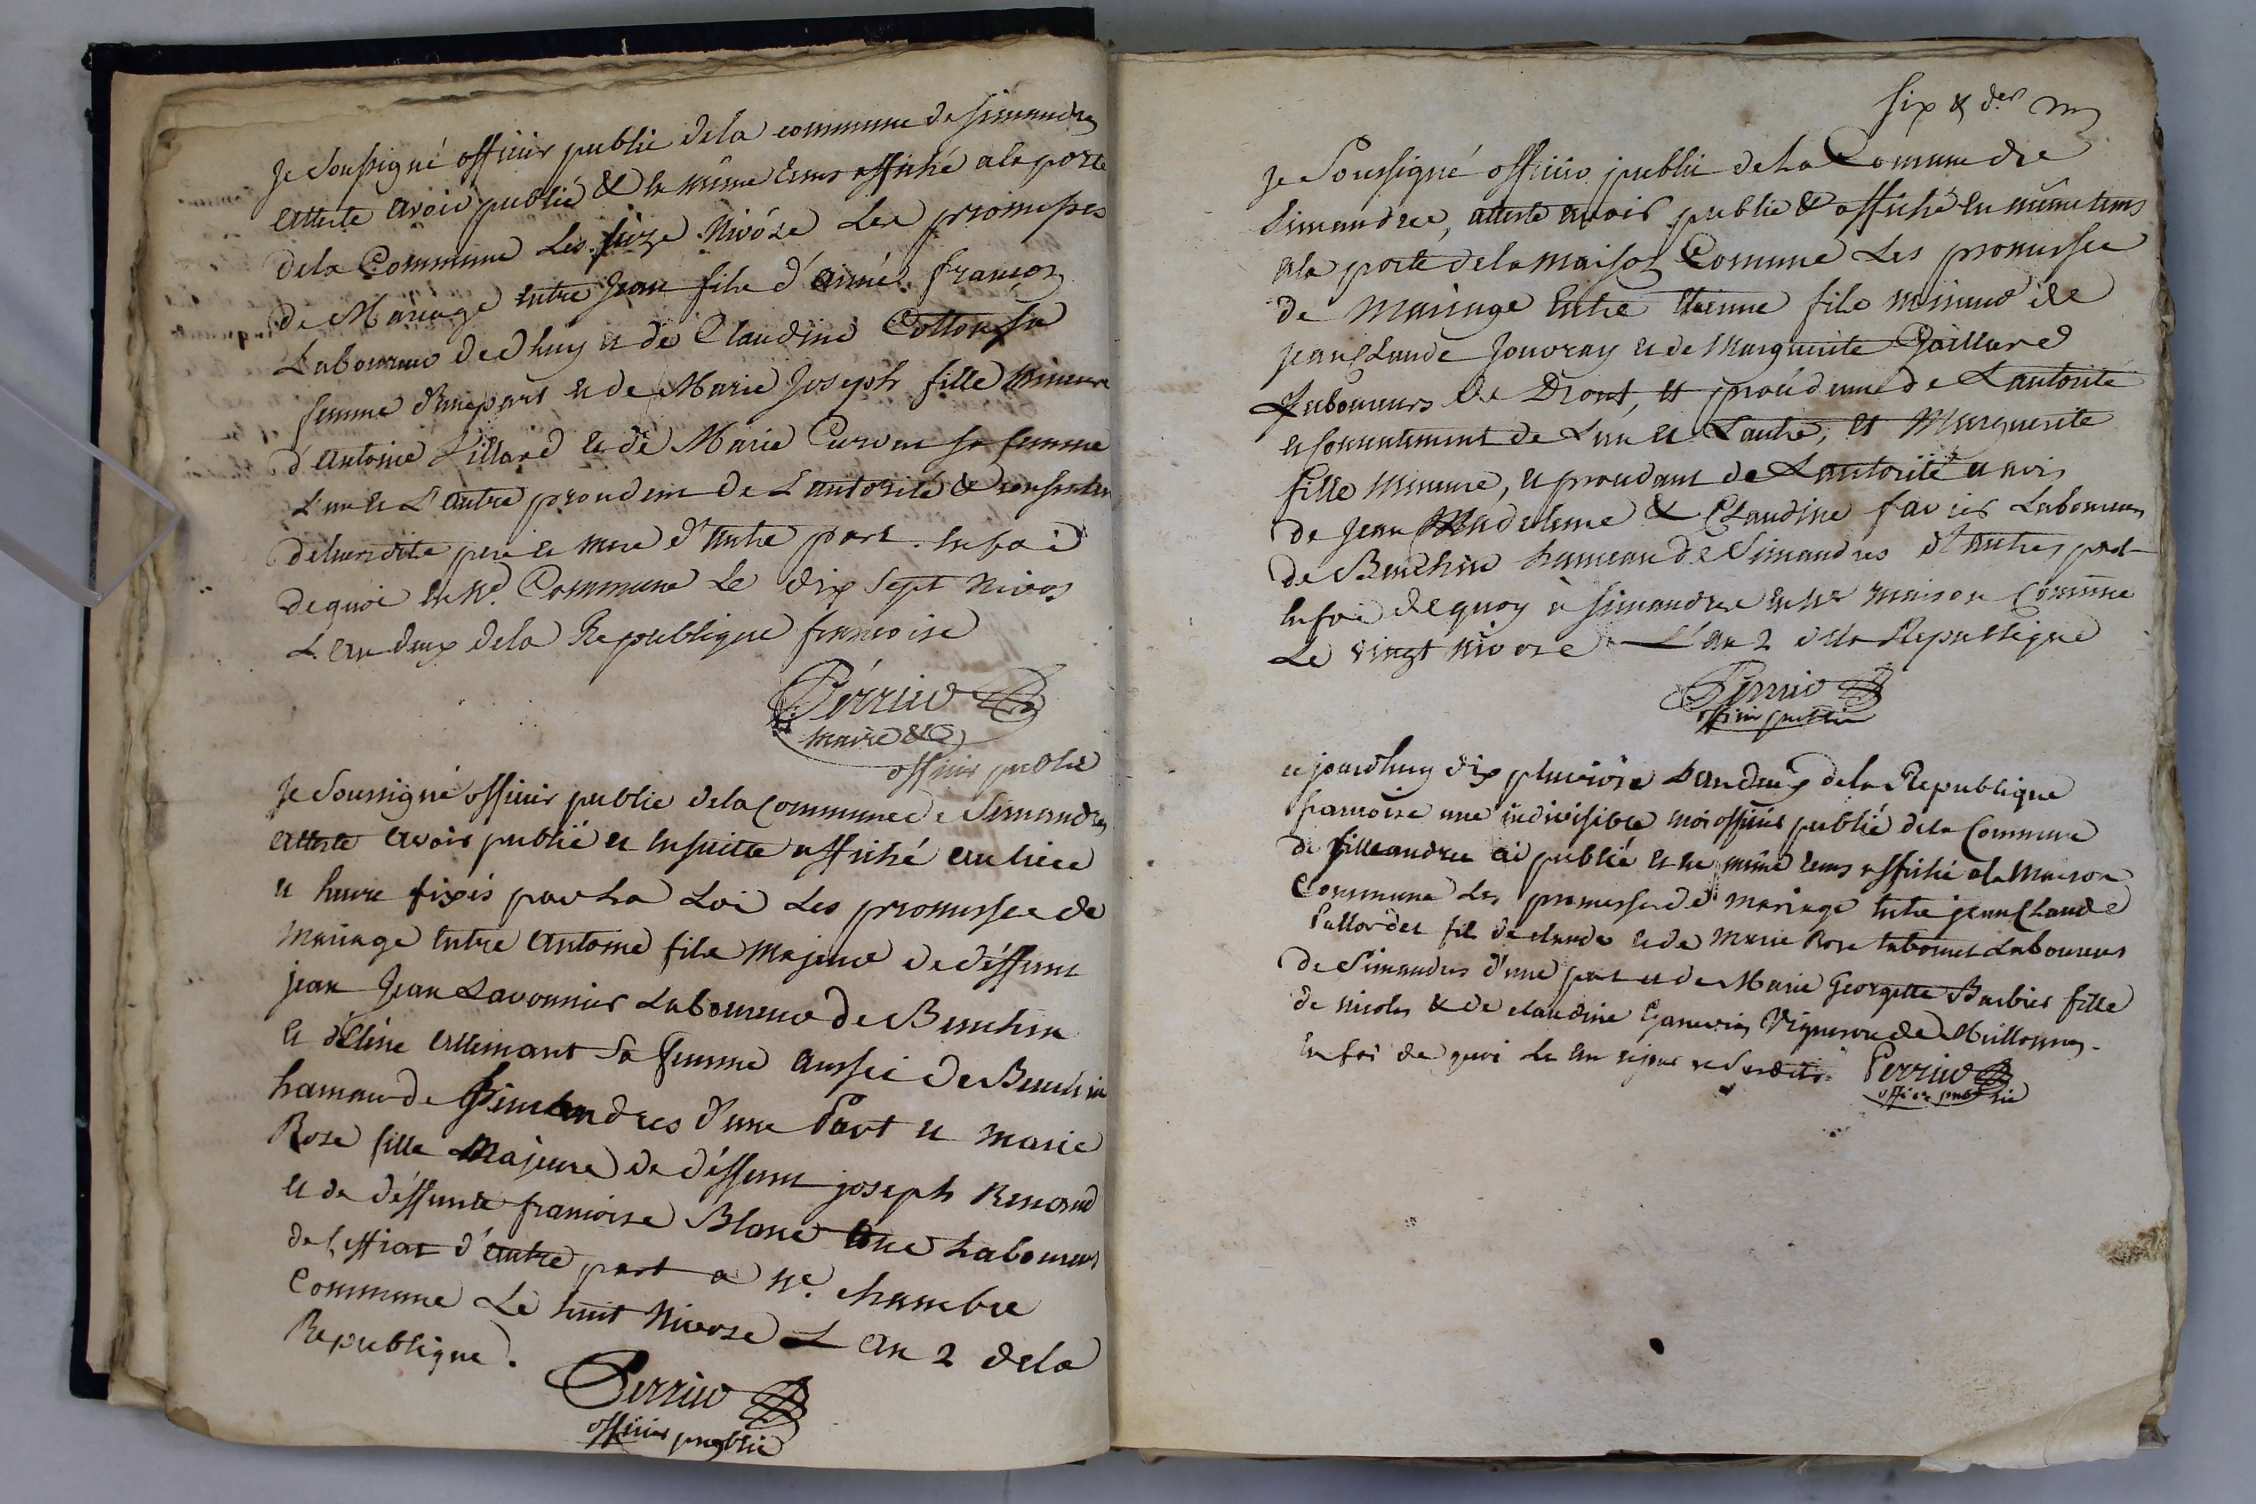 Je soussigné officier public de la commune de Simandres
atteste avoir publié & en même tems affiché a la porte
de la Commune Les seize Nivôse Les promesses
de Mariage entre Jean fils d'aimé françon
Laboureur de Dhuy et de Claudine Cotton sa
femme d'une part et de Marie Joseph fille mineure
d'Antoine Lillard et de Marie sa femme
L'un et L'autre de L'autorité &
de leur dite pere et mere d'autre part. en foi
de quoi en Nre. Commune Le dix sept Nivos
L'an deux de la Republique francoise
Perrin
maire &
officier public
Je soussigné officier public de la Commune de Simandres
atteste avoir publié et ensuitte affiché au lieu
et heure fixés par La Loi Les promesses de
Mariage entre Antoine fils Majeur de déffunt
jean Jean Lavonnier Laboureur de Bimchin
et d'eline allemant Sa femme aussi de
hameau de Simandres d'une Part et Marie
Rose fille Majeure de déffunt joseph Renoud
et de déffunte francoise Blanc Laboureur
de d'autre part a Nre. chambre
Commune Le huit Nivose L an 2 de la
Republique.
Perrin
officier public
six & der
Je Soussigné officier public de La Commune de
Simandres, atteste avoir publié & affiché en même tems
a la porte de la maison Comune Les promesses
de Mariage Entre Etienne fils mineur de
jean Claude Jouvray et de Marguerite Gaillard
Laboureurs de Dront, et de L'autorité
et consentement de L'un et L'autre, et Marguerite
fille Mineure, et de L'autorité et avis
de Jean Madeleine & Claudine favier Laboureur
de hameau de Simandres d'autre part
en foi de quoy à Simandres en Nre maison Commune
Le vingt nivose L'an 2 de la Republique
Perrin
officier public
cejourdhuy dix pluviôse L'an deux de la Republique
francoise une indivisible moi officier public de la Commune
de Simandres ai publié et en même tems affiché a la Maison
Commune Les promesses de mariage entre jean Claude
fils de claude et de Marie Rose Laboureurs
de Simandres d'une part et de Marie Georgette Barbier fille
de nicolas & de claudine Vigneron de
en foi de quoi Le an et jour Perrin
officier public